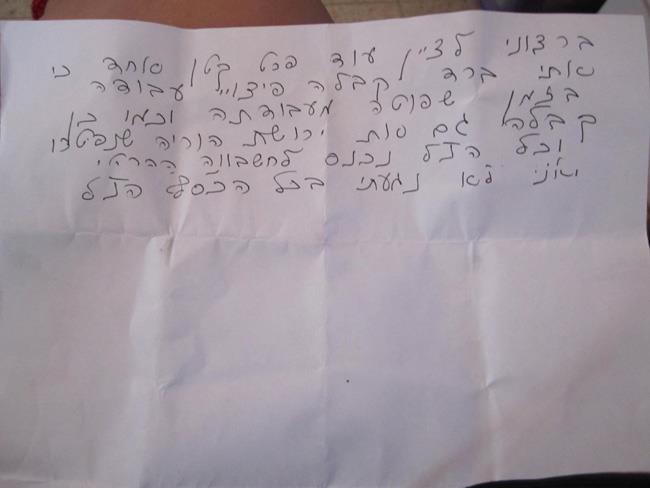 ברצוני לציין עוד פרט קטן ואחד כי
אתי ברד קבלה פיצויי עבודה
בזמן שפוטרה מעבודתה וכמו כן
קבלה גם את ירושת הוריה שנפטרו
וכל הנ"ל נכנס לחשבונה הפרטי
ואני לא נגעתי בכל הכסף הנ"ל